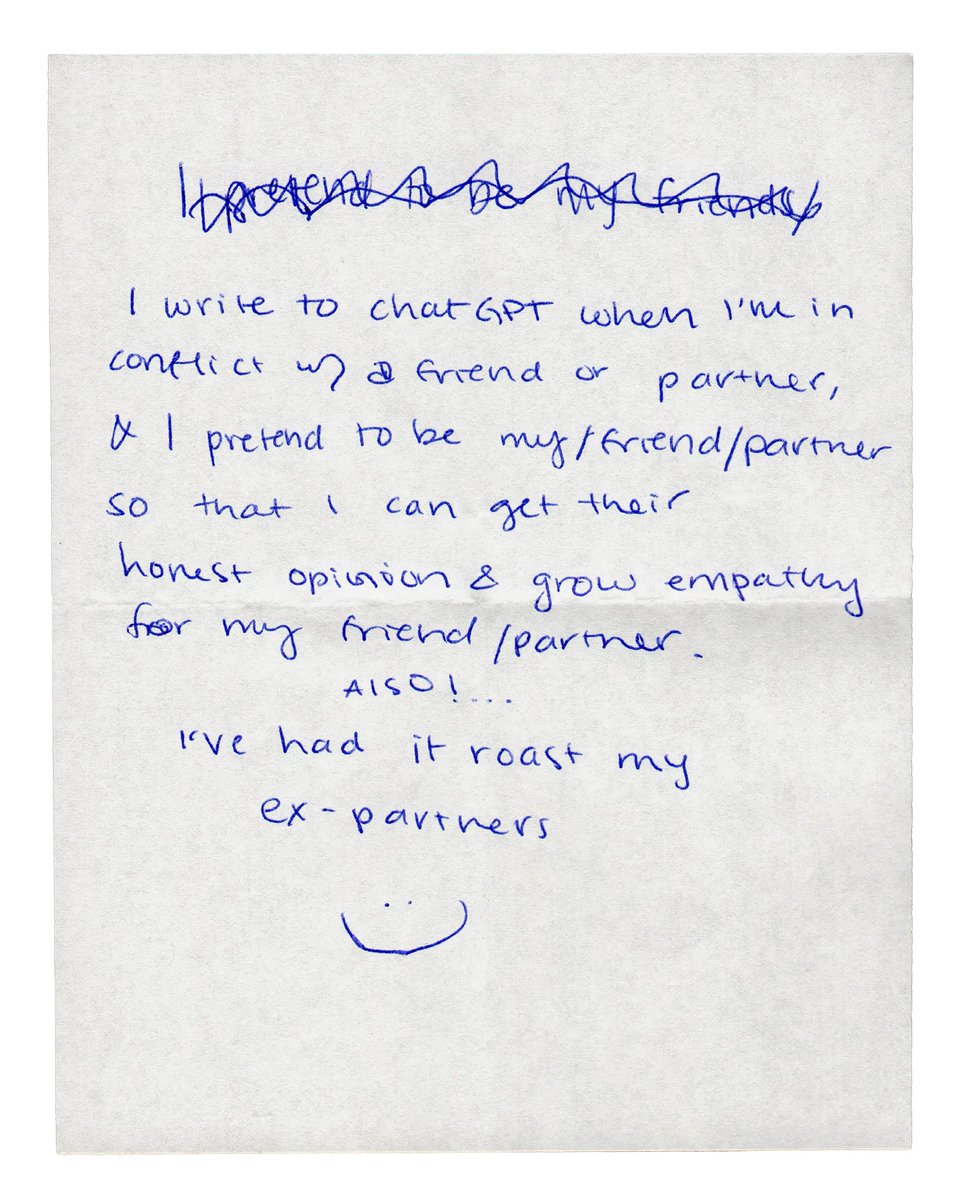 I pretend to be my friends
I write to chatGPT when I'm in
conflict w/ a friend or partner,
& I pretend to be my/friend/partner
so that I can get their
honest opinion & grow empathy
for my friend/partner.
AlSO!...
I've had it roast my
ex-partners